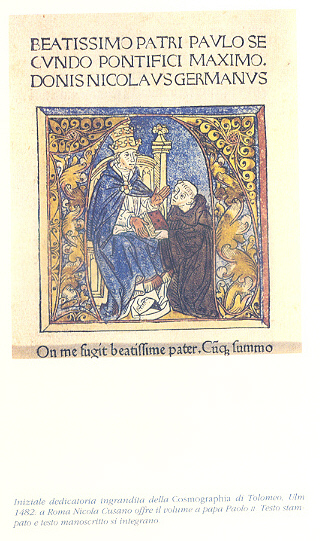 BEATISSIMO PATRI PAVLO SE
CVNDO PONTIFICI MAXIMO.
DONIS NICOLAVS GERMANVS
On me fugit beatissime pater. Cũq; summo
Iniziale dedicatoria ingrandita della Cosmographia di Tolomeo. Ulm
1482. a Roma Nicola Cusano offre il volume a papa Paolo II. Testo stam-
pato e testo manoscritto si integrano